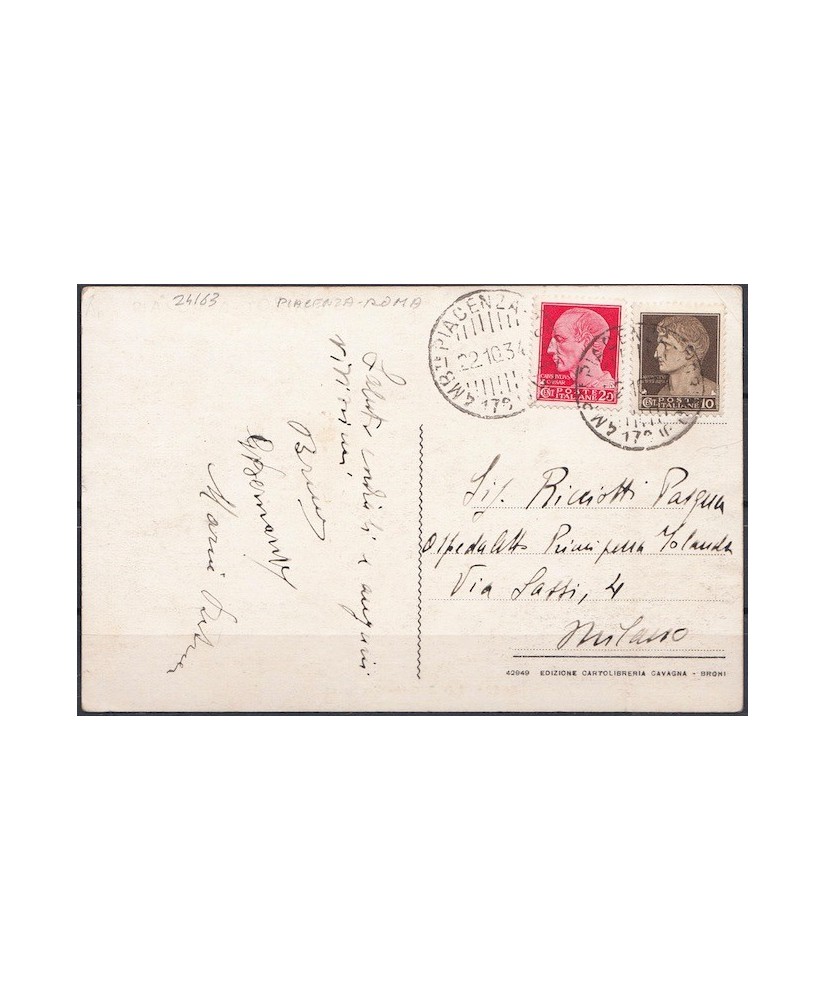 24/63
PIACENZA-ROMA
AMBte PIACENZA
22.10.34
178
CAIVS IVLIVS
CAESAR
CENT. 20
POSTE
ITALIANE
CENT. 10
POSTE
ITALIANE
AMBte PIACENZA
178
Saluti cordiali e auguri
vivissimi
Bruno
Maria
Sig. Ricciotti Pasqua
Ospedaletto Principessa Iolanda
Via Sassi, 4
Milano
42949 EDIZIONE CARTOLIBRERIA CAVAGNA - BRONI